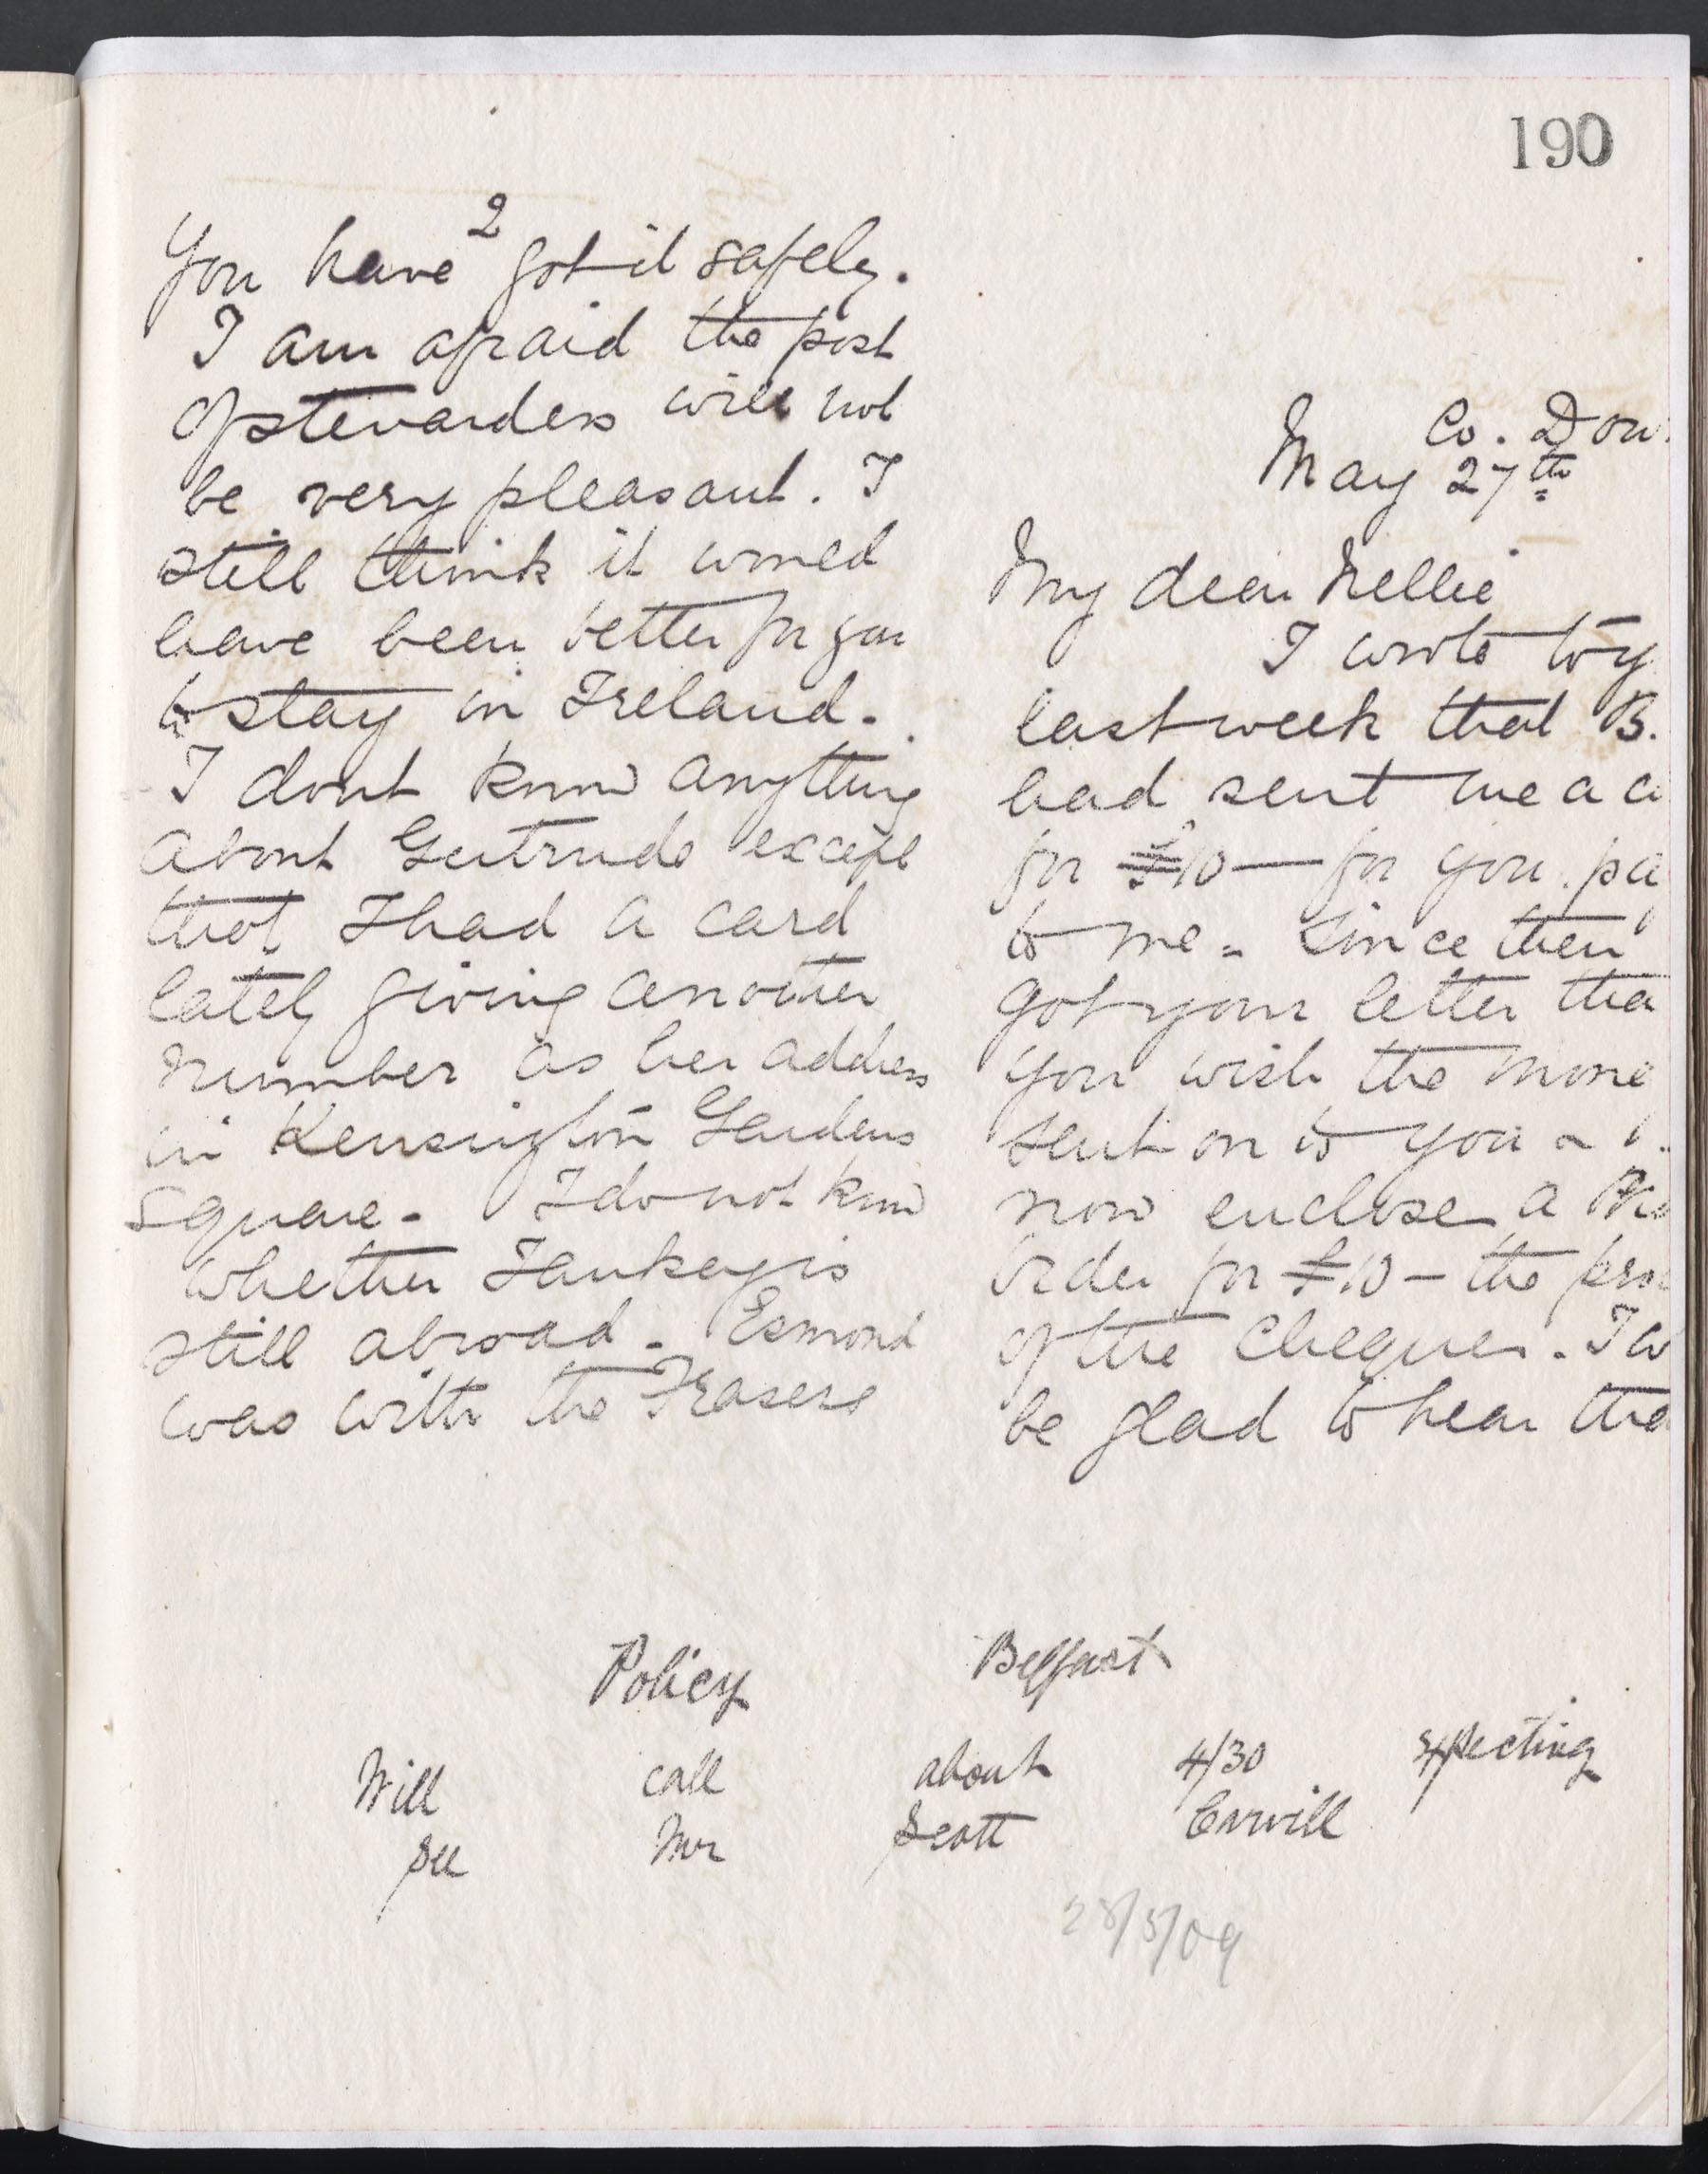 190
2
You have got it safely.
I am afraid the post
of stewardess will not
be very pleasant. I
still think it would
have been better for you
to stay in Ireland.
I dont know anything
about Gertrude except
that I had a card
lately giving another
number as her address
in Kensington Gardens
Square. I do not know
whether Tankey is
still abroad. Esmond
was with the Frasers
Co. Down
May 27th
My dear Nellie
I wrote to y
last week that B.
had sent me a c
for £10 — for you. pa
to me. Since then
got your letter tha
you wish the mone
sent on to you
now enclose a
order for £10 – the pro
of the cheque. I w
be glad to hear tha
Policy Belfast
Will call about 4/30 expecting
see Mr Scott Carvill
28/5/09